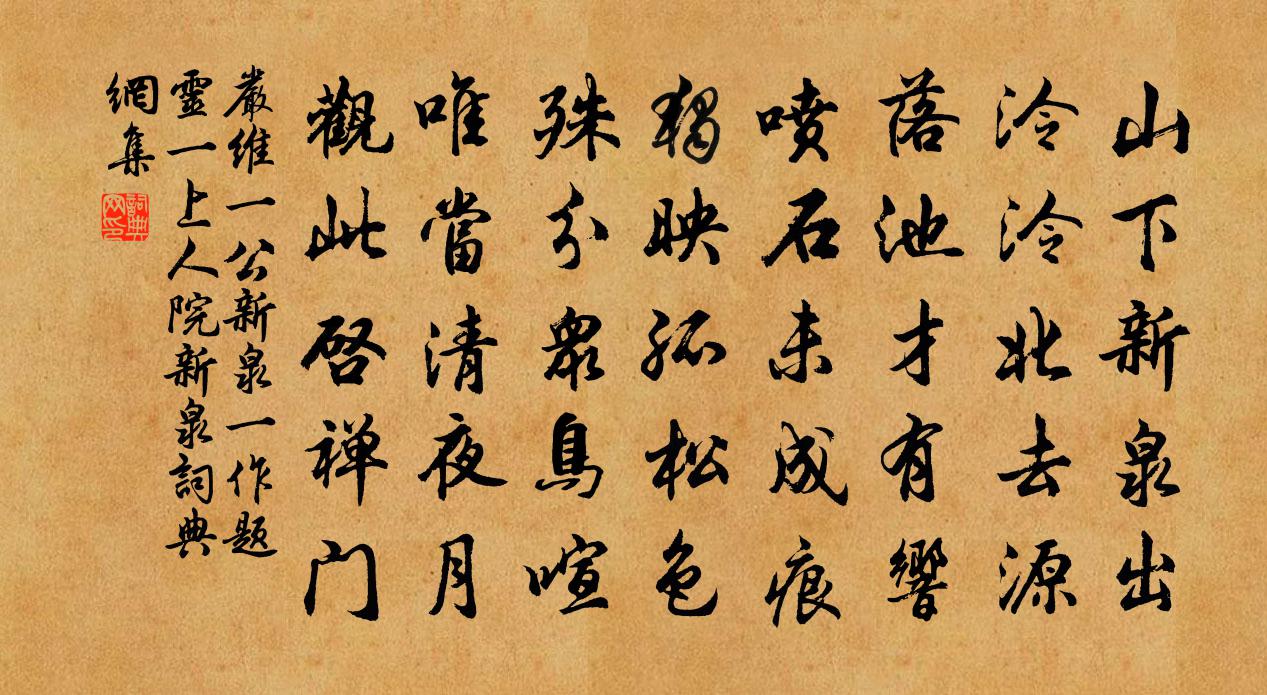 山下新泉出
泠泠北去源
落池才有響
噴石未成痕
獨映孤松色
殊分衆鳥喧
唯當清夜月
觀此啓禅门
嚴維一公新泉一作题
靈一上人院新泉詞典
網集
詞典网印